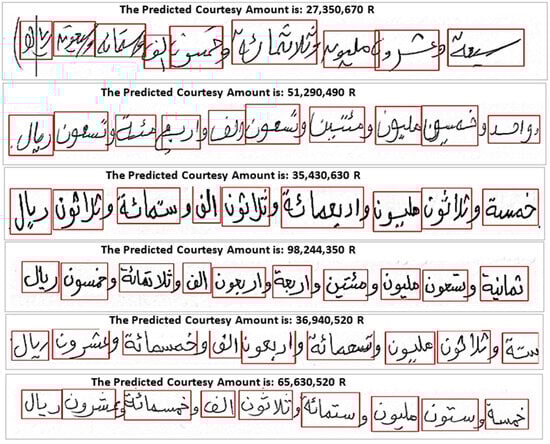 The Predicted Courtesy Amount is: 27,350,670 R
سبعة وعشرون مليون وثلاثمائة وخمسون الف وستمائة وسبعون ريال
The Predicted Courtesy Amount is: 51,290,490 R
واحد وخمسين مليون ومئتين وتسعون الف واربع مئة وتسعون ريال
The Predicted Courtesy Amount is: 35,430,630 R
خمسة وثلاثون مليون واربعمائة وثلاثون الف وستمائة وثلاثون ريال
The Predicted Courtesy Amount is: 98,244,350 R
ثمانية وتسعون مليون ومئتين واربعة واربعون الف وثلاثمائة وخمسون ريال
The Predicted Courtesy Amount is: 36,940,520 R
ستة وثلاثون مليون وتسعمائة واربعون الف وخمسمائة وعشرون ريال
The Predicted Courtesy Amount is: 65,630,520 R
خمسة وستون مليون وستمائة وثلاثون الف وخمسمائة وعشرون ريال